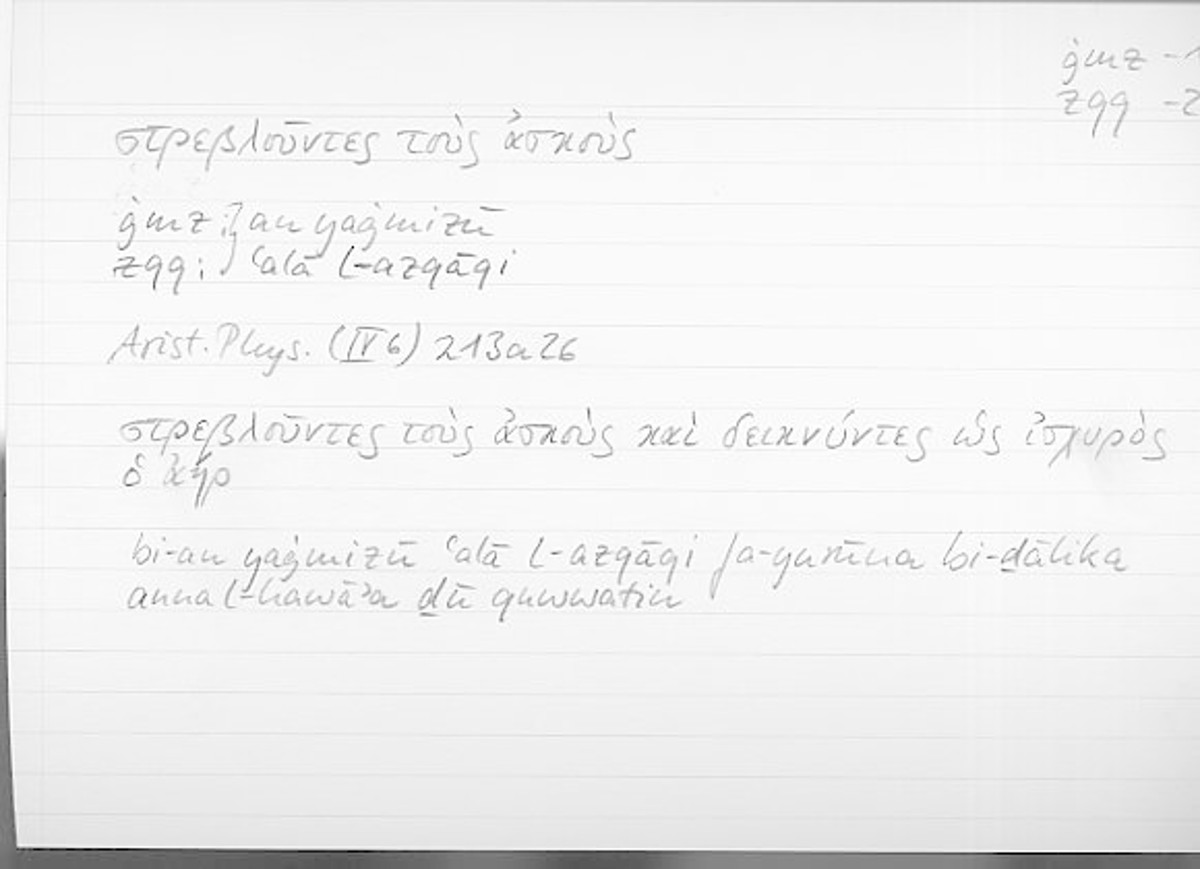 ġmz -1
zqq -2
στρεβλοῦντες τοὺς ἀσκοὺς
ġmz: } an yaġmizū
zqq: } ʿalā l-azqāqi
Arist. Phys. (IV 6) 213a26
στρεβλοῦντες τοὺς ἀσκοὺς καὶ δεικνύντες ὡς ἰσχυρὸς
ὁ ἀήρ
bi-an yaġmizū ʿalā l-azqāqi fa-yurūna bi-ḏālika
anna l-hawāʾa ḏū quwwatin